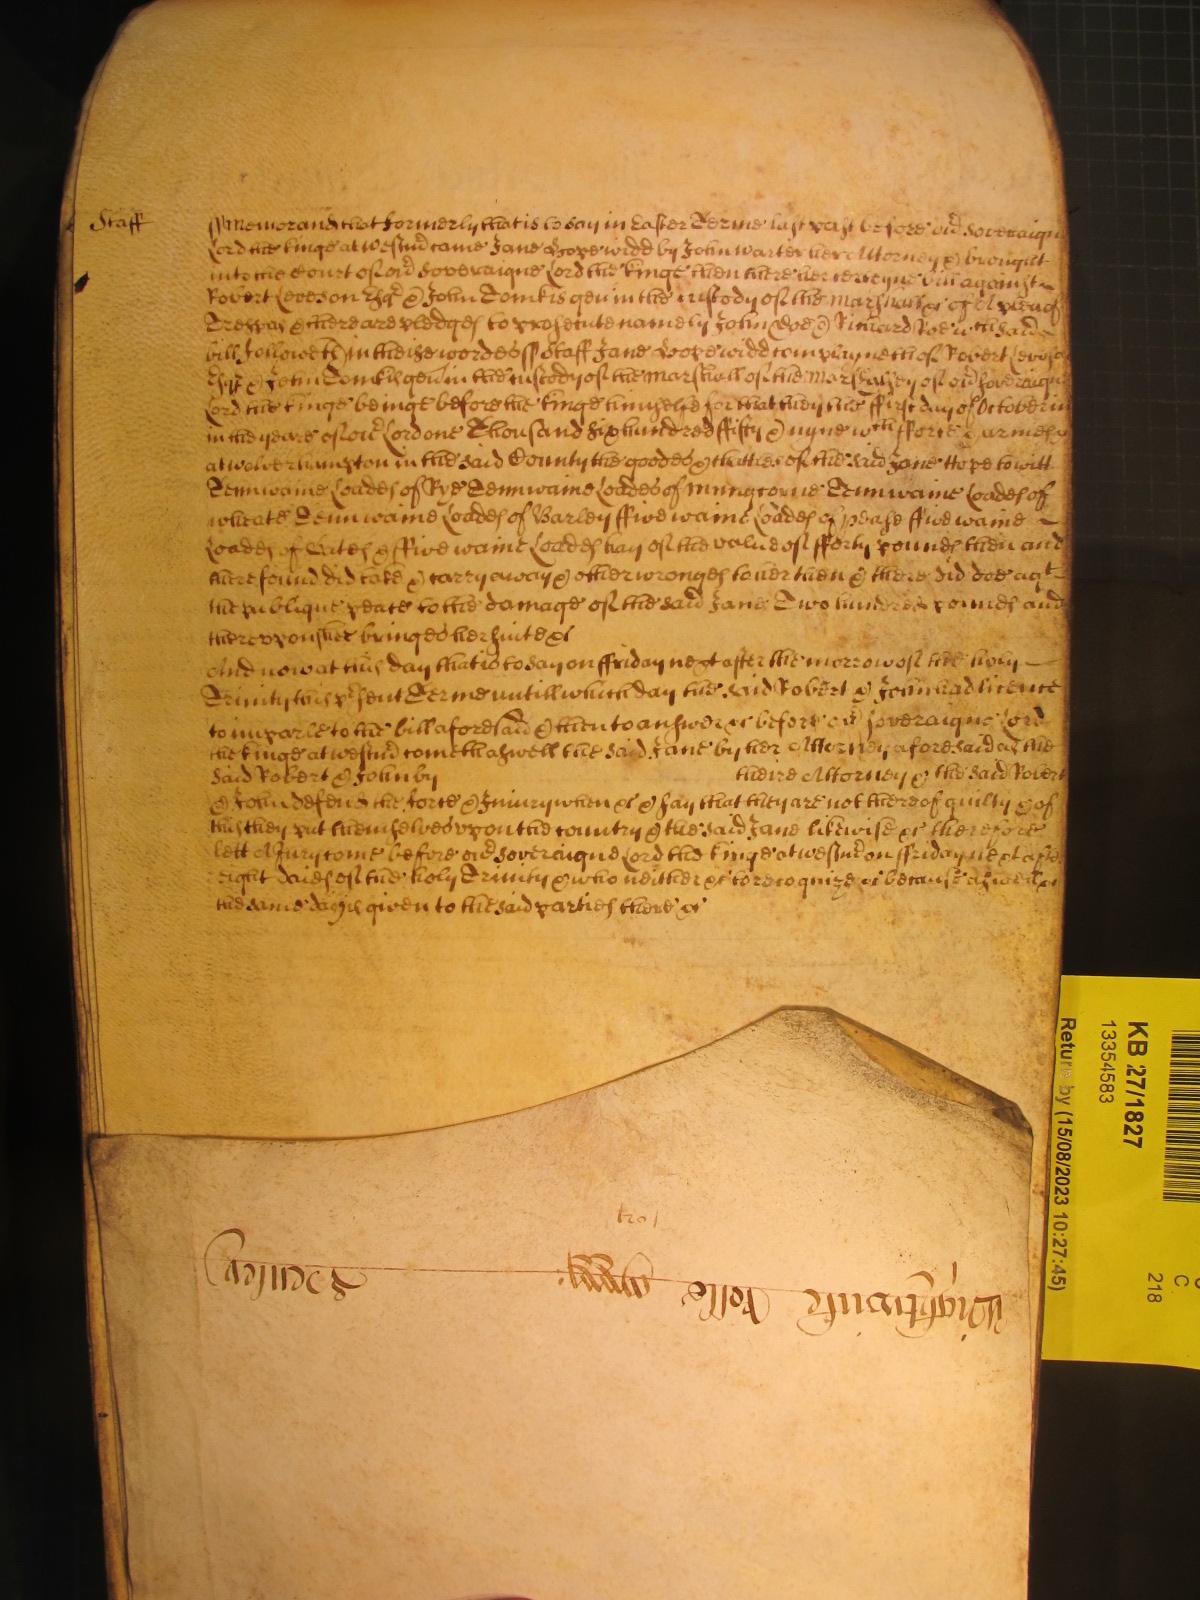 Staff
ss Memorand that formerly that is to say in Easter Terme last past before our Soveraigne
Lord the Kinge at Westmr came Jane Hope widd by John Warter her Attorney & brought
into the Court of our Soveraigne Lord the Kinge then there her certeyne bill against
Robert Leveson Esqr & John Tomkis gen in the custody of the Marshall &c of a plea of
Trespas & there are pledges to prosecute namely John Doe & Richard Roe wch said
bill followeth in these wordes ss Staff Jane Hope widd complayneth of Robert Leveson
Esqr & John Tomkis gen in the custody of the Marshall of the Marshalsey of our Soveraigne
Lord the Kinge beinge before the Kinge himselfe for that they the ffirst day of October in
in the yeare of our Lord one Thousand Six hundred ffifty & nyne wth fforce & armes
at Wolverhampton in the said County the goodes & chattles of the said Jane Hope to witt
Tenn waine Loades of Rye Tenn waine Loades of Mungcorne Tenn waine Loades of
wheate Tenn waine Loades of Barley ffive waine Loades of pease ffive waine
Loades of Oates & ffive waine Loades hay of the value of fforty pounds then and
there found did take & carry away & other wronges to her then & there did doe agt
the publique peace to the damage of the said Jane Two hundred pounds and
thereupon shee bringes her suite &c
And now at this day that is to say on ffriday next after the morrow of the holy
Trinity this psent Terme untill which day the said Robert & John had licence
to imparle to the bill aforesaid & then to answer &c before our Soveraigne Lord
the Kinge at Westmr cometh aswell the said Jane by her Attorney aforesaid as the
said Robert & John by theire Attorney & the said Robert
& John defend the force & Injury when &c & say that they are not thereof guilty & of
this they put themselves upon the country & the said Jane likewise &c therefore
lett a Jury come before our Soveraigne Lord the Kinge at Westmr on ffriday next after
eight daies of the holy Trinity & who neither &c to recognize &c because aswell &c
the same day is given to the said parties there &c
Wightwicke Rolle
KB 27/1827
13354583
Return by (15/08/2023 10:27:45)
C
218